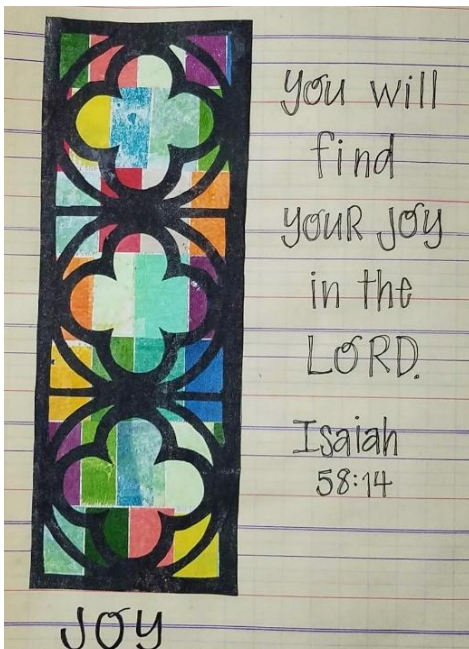 you will
find
youR joy
in the
LORD.
Isaiah
58:14
JOY